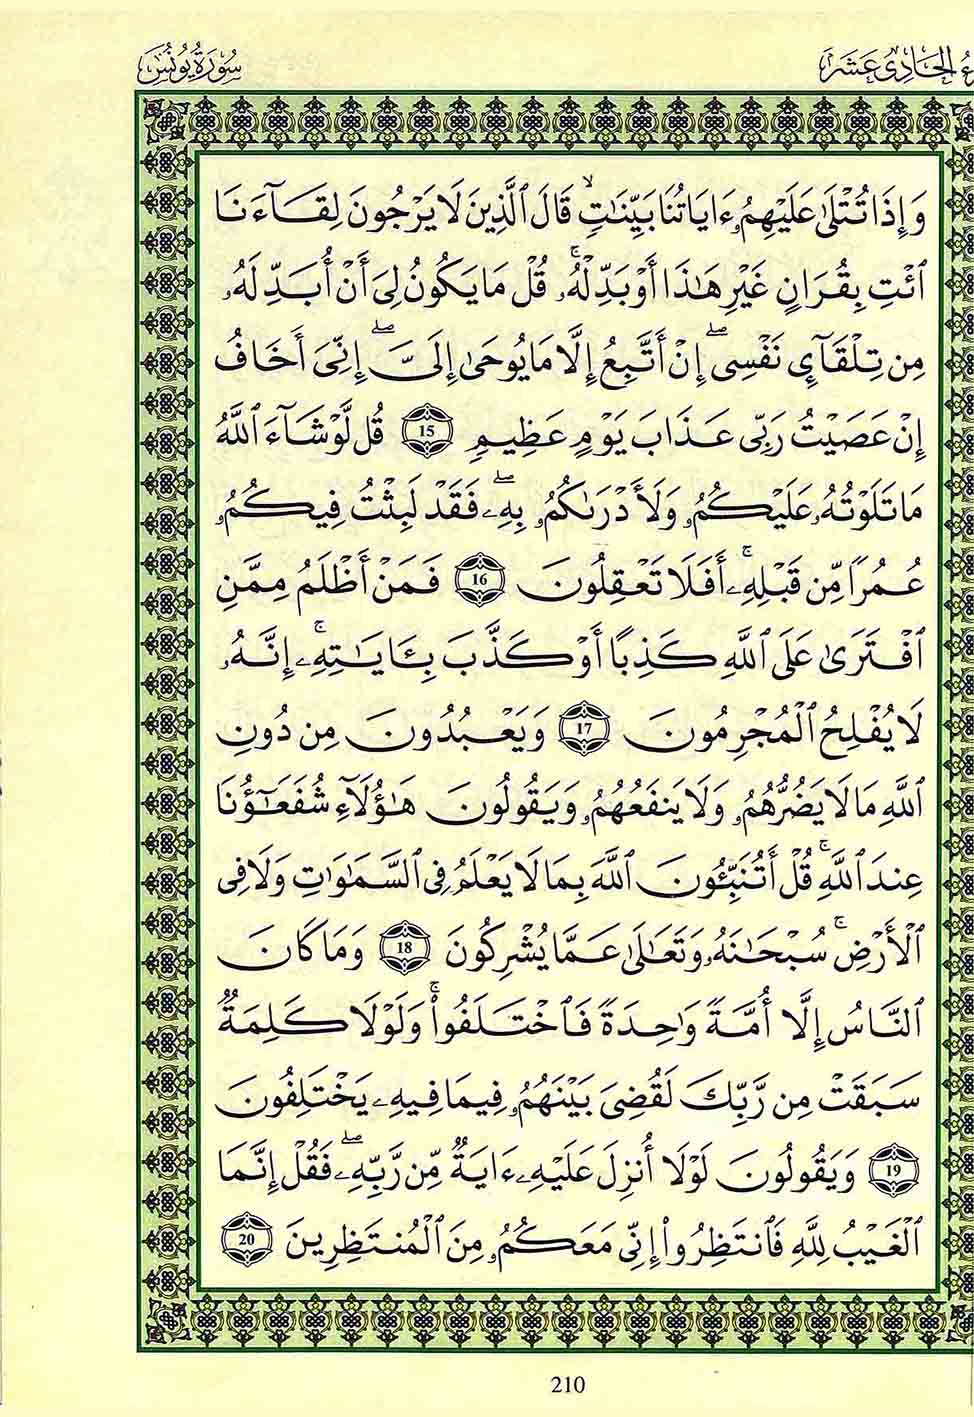 الحَادِى عَشَرَ
سُورَةُ يُونُسَ
وَإِذَا تُتْلَىٰ عَلَيْهِمُۥ ءَايَاتُنَا بَيِّنَٰتٖۙ قَالَ ٱلَّذِينَ لَا يَرْجُونَ لِقَآءَنَا
ٱئْتِ بِقُرَانٍ غَيْرِ هَٰذَا أَوْ بَدِّلْهُۚ قُلْ مَا يَكُونُ لِىَ أَنْ أُبَدِّلَهُۥ
مِن تِلْقَآئِ نَفْسِىۖ إِنْ أَتَّبِعُ إِلَّا مَا يُوحَىٰ إِلَىَّۖ إِنِّىَ أَخَافُ
إِنْ عَصَيْتُ رَبِّى عَذَابَ يَوْمٍ عَظِيمٍ 15 قُل لَّوْ شَآءَ ٱللَّهُ
مَا تَلَوْتُهُۥ عَلَيْكُمُۥ وَلَأَدْرَىٰكُمُۥ بِهِۦۖ فَقَدْ لَبِثْتُ فِيكُمُۥ
عُمُرًا مِّن قَبْلِهِۦۚ أَفَلَا تَعْقِلُونَ 16 فَمَنْ أَظْلَمُ مِمَّنِ
ٱفْتَرَىٰ عَلَى ٱللَّهِ كَذِبًا أَوْ كَذَّبَ بِـَٔايَٰتِهِۦۚ إِنَّهُۥ
لَا يُفْلِحُ ٱلْمُجْرِمُونَ 17 وَيَعْبُدُونَ مِن دُونِ
ٱللَّهِ مَا لَا يَضُرُّهُمُۥ وَلَا يَنفَعُهُمُۥ وَيَقُولُونَ هَٰٓؤُلَآءِ شُفَعَٰٓؤُنَا
عِندَ ٱللَّهِۚ قُلْ أَتُنَبِّـُٔونَ ٱللَّهَ بِمَا لَا يَعْلَمُ فِى ٱلسَّمَٰوَٰتِ وَلَا فِى
ٱلْأَرْضِۚ سُبْحَٰنَهُۥ وَتَعَٰلَىٰ عَمَّا يُشْرِكُونَ 18 وَمَا كَانَ
ٱلنَّاسُ إِلَّا أُمَّةً وَٰحِدَةً فَٱخْتَلَفُوا۟ۚ وَلَوْلَا كَلِمَةٌ
سَبَقَتْ مِن رَّبِّكَ لَقُضِىَ بَيْنَهُمُۥ فِيمَا فِيهِۦ يَخْتَلِفُونَ
19 وَيَقُولُونَ لَوْلَا أُنزِلَ عَلَيْهِۦ ءَايَةٌ مِّن رَّبِّهِۦۖ فَقُلْ إِنَّمَا
ٱلْغَيْبُ لِلَّهِ فَٱنتَظِرُوا۟ إِنِّى مَعَكُمُۥ مِنَ ٱلْمُنتَظِرِينَ 20
210